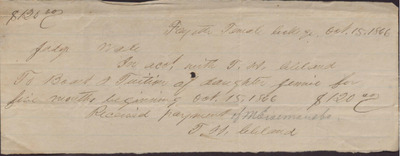 $120.00
Fayette Female Academy, Oct. 15, 1866
Judge
In acct with T. H. Cleland
To Board & Tuition of daughter Jennie for
five months beginning Oct. 15, 1866 $120.00
Received payment of
T. H. Cleland